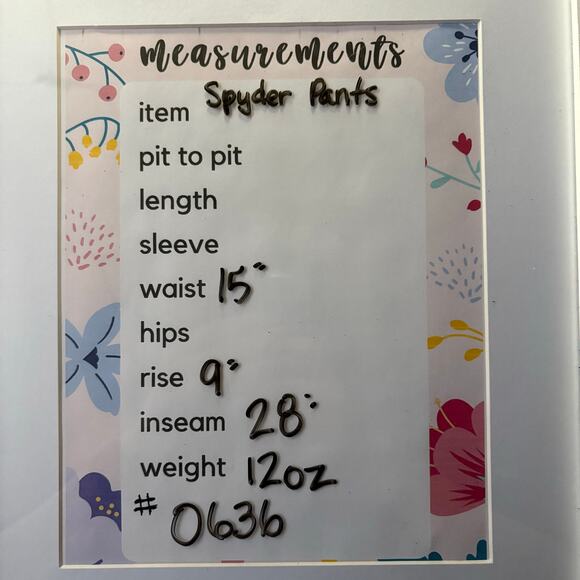 measurements
item Spyder Pants
pit to pit
length
sleeve
waist 15"
hips
rise 9"
inseam 28"
weight 12oz
# 0636